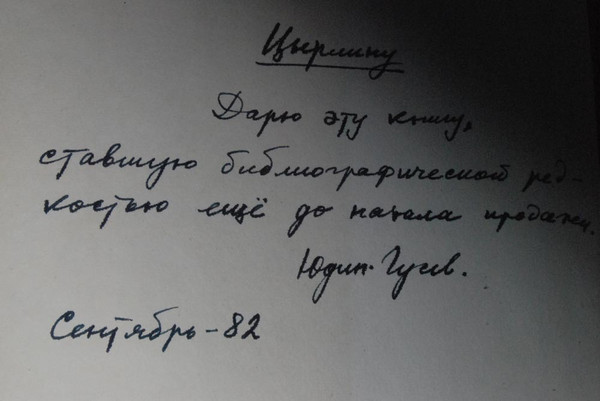 Цырлину
Дарю эту книгу,
ставшую библиографической ред-
костью ещё до начала продажи.
Юдин-Гусев.
Сентябрь-82